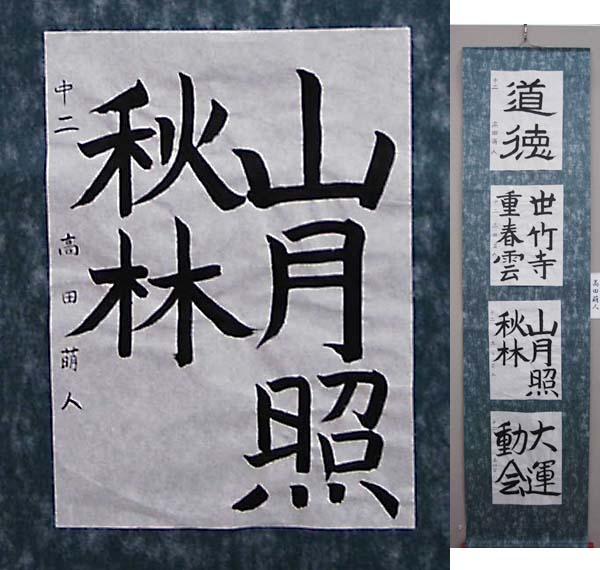 山月照
秋林
中二 高田萌人
道徳
世竹寺
重春雲
山月照
秋林
大運
動会
高田萌人